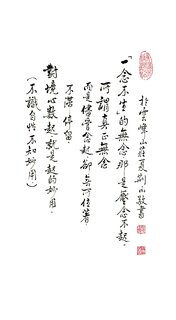 「一念不生的無念那是壓念不起，
所謂真正無念
而是儘管念起，卻無所住著，
不滯停留，
對境心數起，就是起的妙用。
（不識自性不知妙用）
於雲峰山莊夏荆山敬書